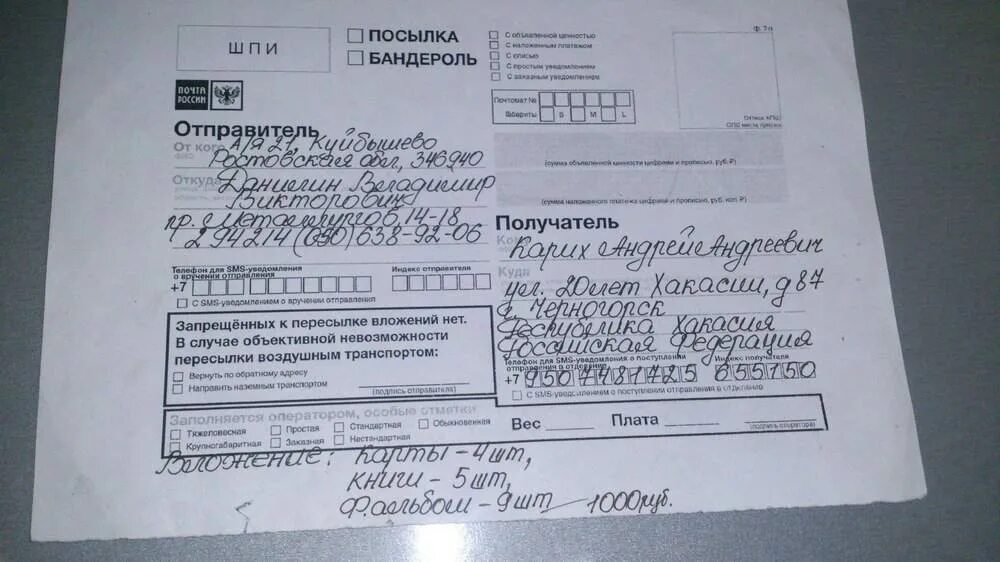 ф. 7п
ШПИ
ПОСЫЛКА
БАНДЕРОЛЬ
С объявленной ценностью
С наложенным платежом
С описью
С простым уведомлением
С заказным уведомлением
Почтомат №
Габариты: S M L
ПОЧТА РОССИИ
Отправитель
От кого
А/я 21, Куйбышево
Ростовская обл, 346940
Откуда
Данилин Владимир
Викторович
пр. с. Металлургов, 14-18
294214 (050) 638-92-06
(сумма объявленной ценности цифрами и прописью, руб. ₽)
(сумма наложенного платежа цифрами и прописью, руб. коп ₽)
Получатель
Кому
Карих Андрей Андреевич
Куда
ул. 20 лет Хакасии, д 87
г. Черногорск
Республика Хакасия
Российская Федерация
Телефон для SMS-уведомления
о вручении отправления
Индекс отправителя
+7
С SMS-уведомлением о вручении отправления
Телефон для SMS-уведомления о поступлении
отправления в отделение
Индекс получателя
+7 9507481725 655150
С SMS-уведомлением о поступлении отправления в отделение
Запрещённых к пересылке вложений нет.
В случае объективной невозможности
пересылки воздушным транспортом:
Вернуть по обратному адресу
Направить наземным транспортом
(подпись отправителя)
Заполняется оператором, особые отметки
Тяжеловесная Простая Стандартная Обыкновенная
Крупногабаритная Заказная Нестандартная
Вес Плата
(подпись оператора)
Вложение: карты - 4 шт,
книги - 5 шт,
Ф.альбом - 9 шт - 1000 руб.